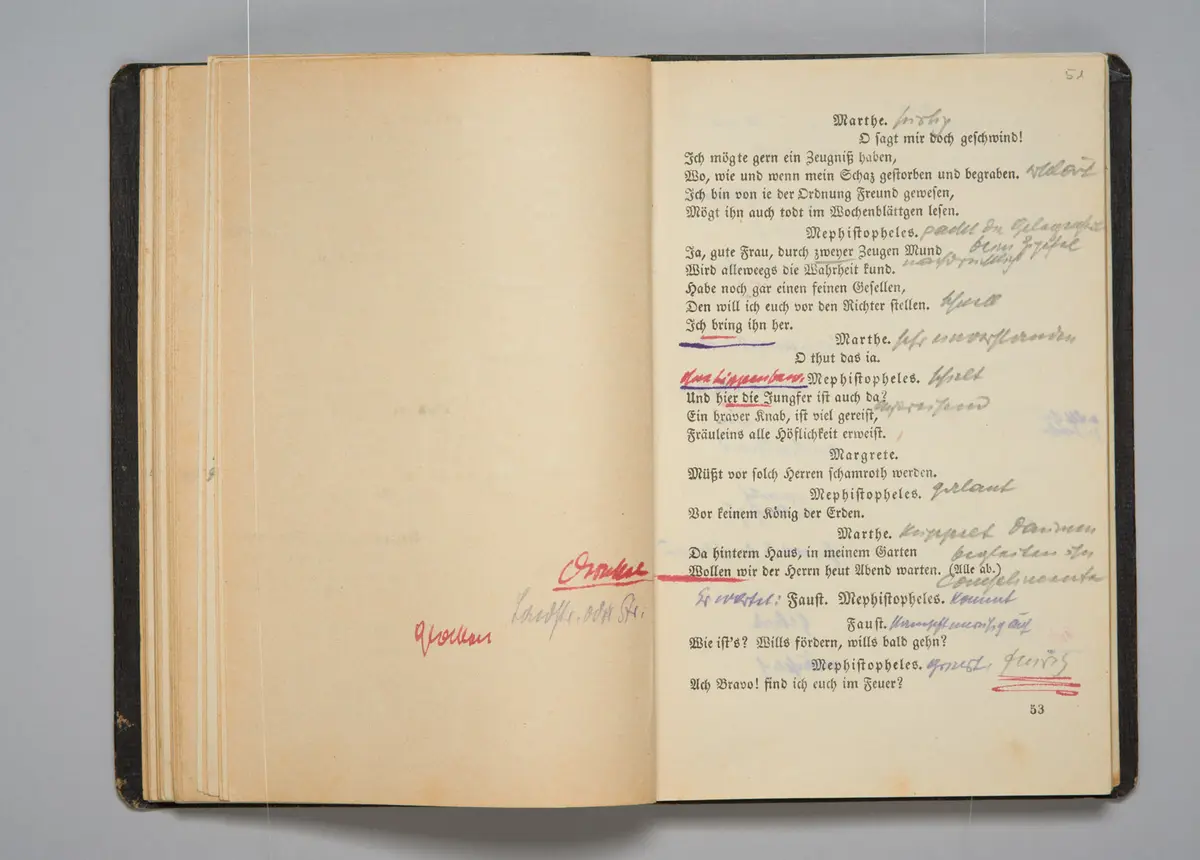 Glocken
51
Marthe.
O sagt mir doch geschwind!
Ich mögte gern ein Zeugniß haben,
Wo, wie und wenn mein Schaz gestorben und begraben.
Ich bin von ie der Ordnung Freund gewesen,
Mögt ihn auch todt im Wochenblättgen lesen.
Mephistopheles.
Ja, gute Frau, durch zweyer Zeugen Mund
Wird alleweegs die Wahrheit kund.
Habe noch gar einen feinen Gesellen,
Den will ich euch vor den Richter stellen. schnell
Ich bring ihn her.
Marthe. sehr einverstanden
O thut das ia.
Mephistopheles. schielt
Und hier die Jungfer ist auch da?
Ein braver Knab, ist viel gereist,
Fräuleins alle Höflichkeit erweist.
Margrete.
Müßt vor solch Herren schamroth werden.
Mephistopheles. galant
Vor keinem König der Erden.
Marthe.
Da hinterm Haus, in meinem Garten begleiten ihn
Wollen wir der Herrn heut Abend warten. (Alle ab.)
Er wartet: Faust. Mephistopheles. kommt
Faust.
Wie ist's? Wills fördern, wills bald gehn?
Mephistopheles. grinst.
Ach Bravo! find ich euch im Feuer?
53